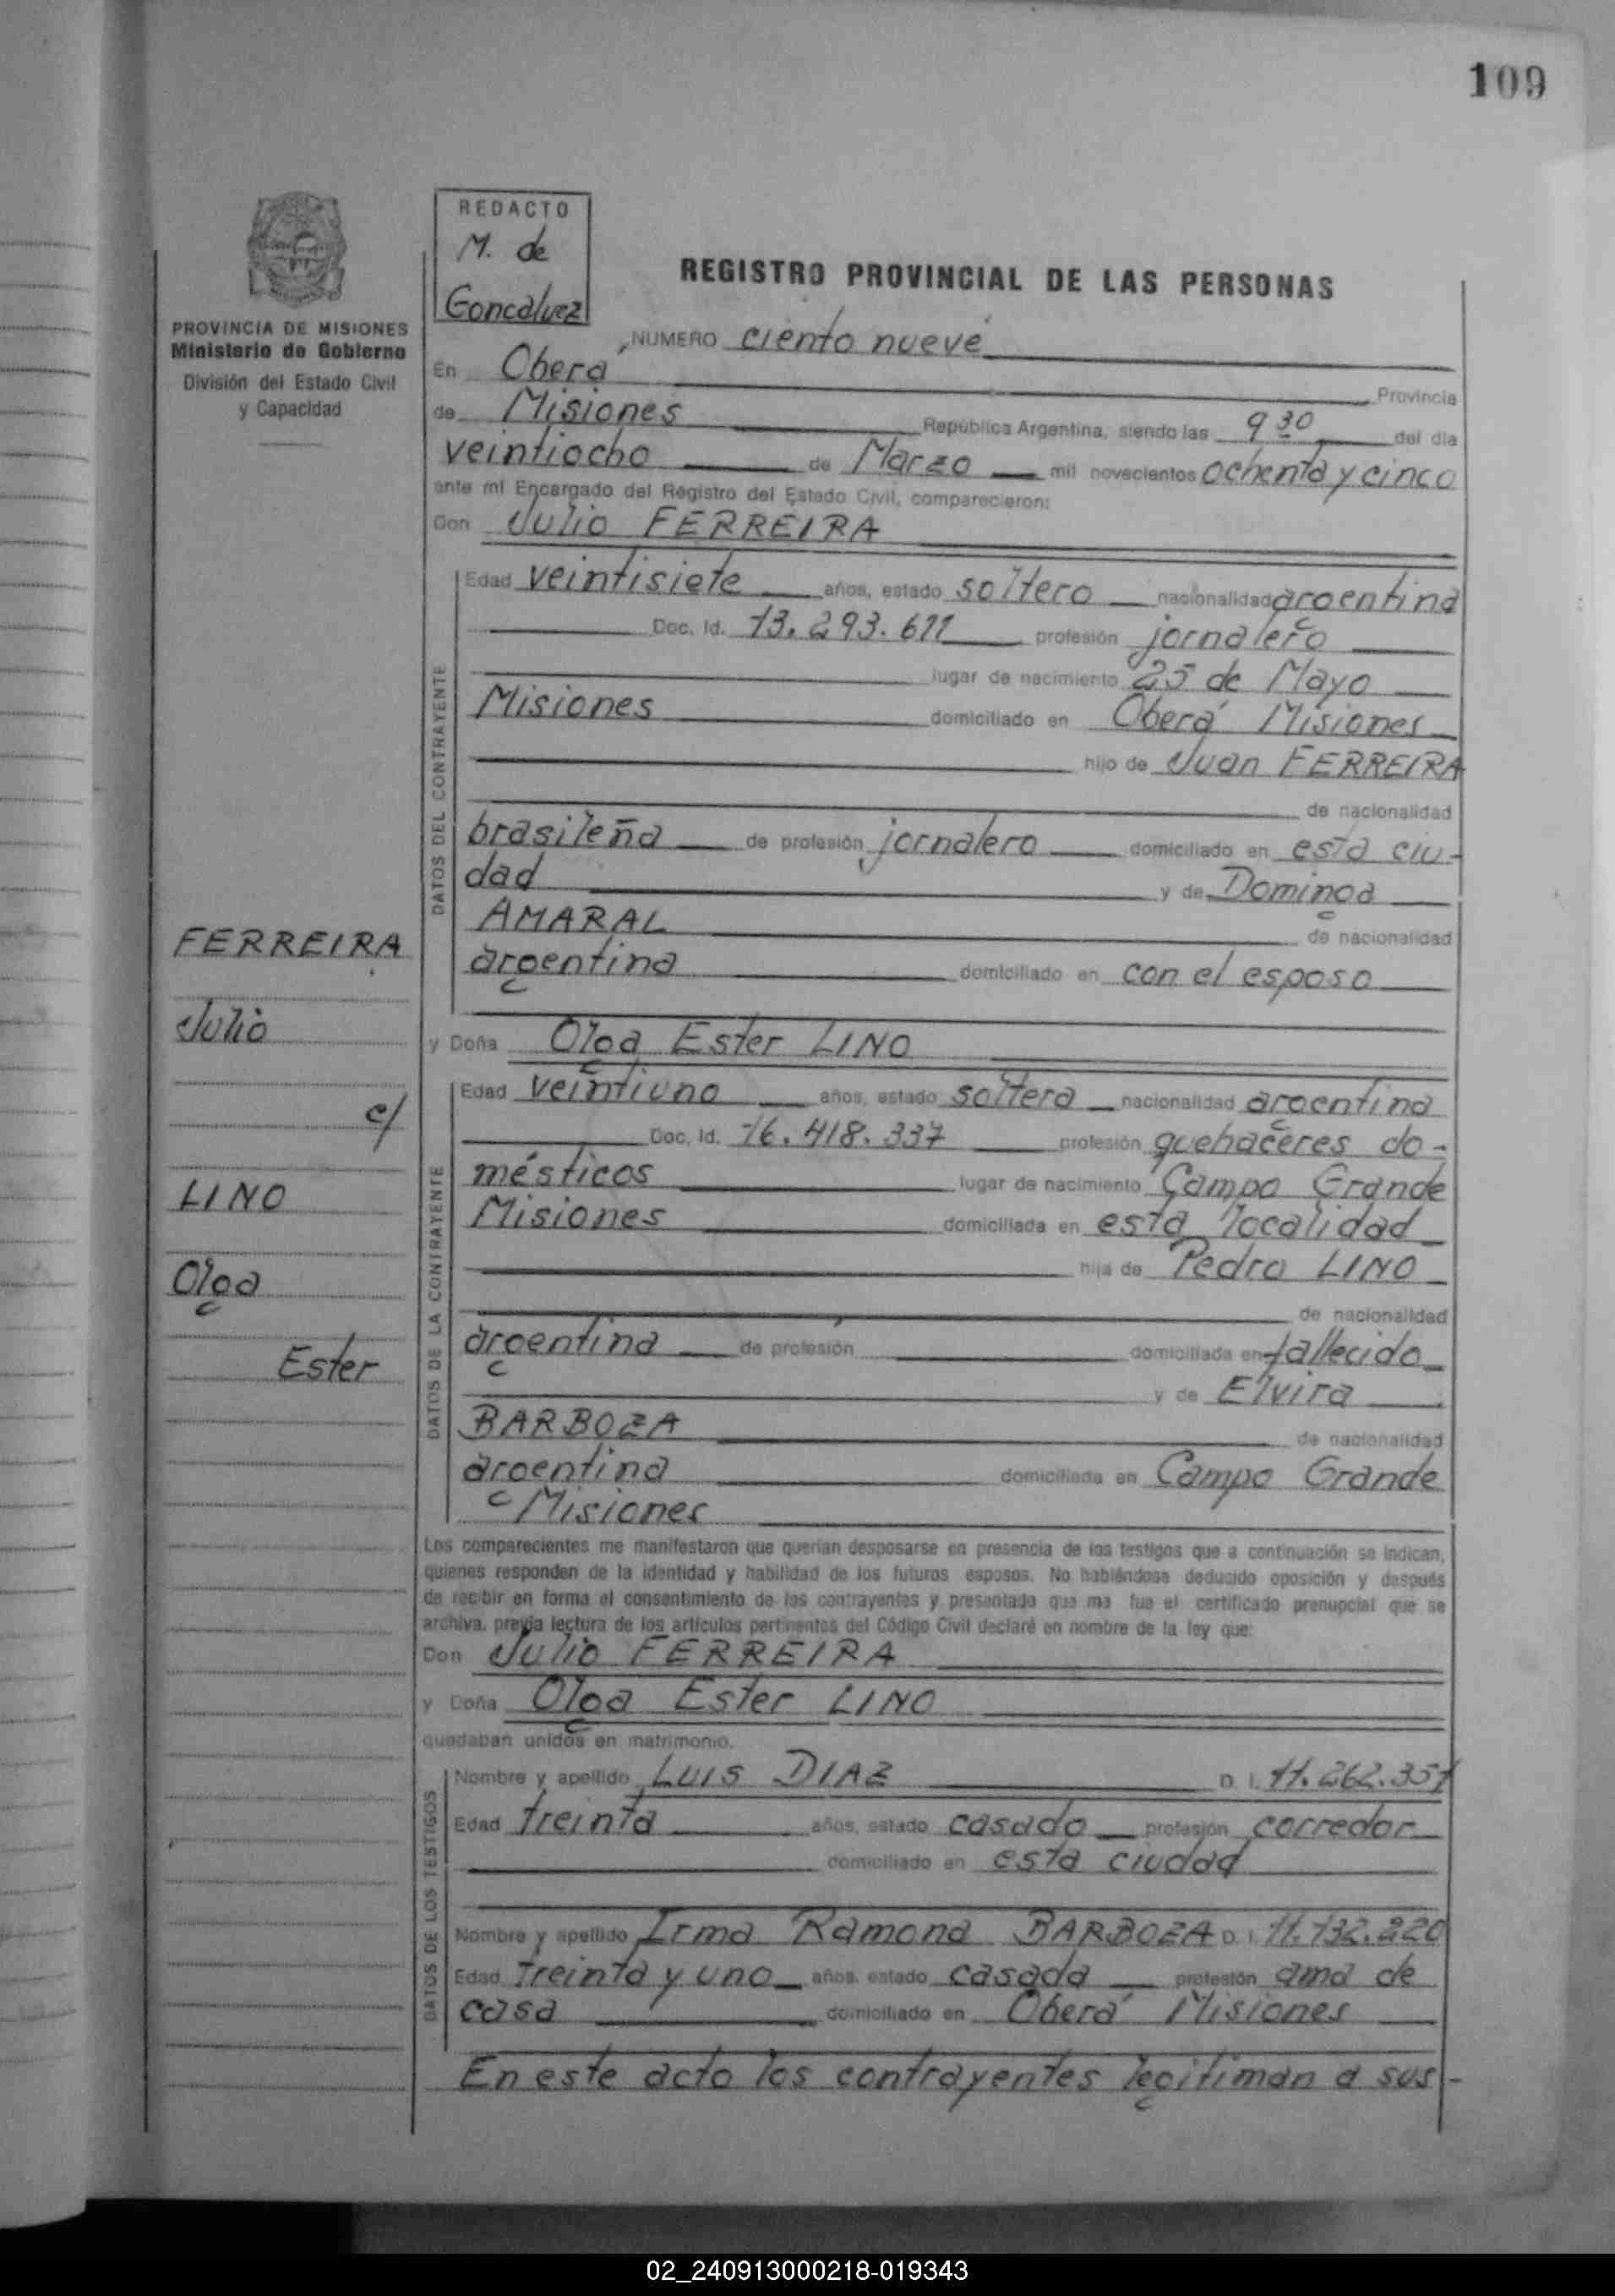 109
REDACTO
M. de
Goncalvez
REGISTRO PROVINCIAL DE LAS PERSONAS
PROVINCIA DE MISIONES
Ministerio de Gobierno
División del Estado Civil
y Capacidad
NUMERO ciento nueve
En Oberá Provincia
de Misiones República Argentina, siendo las 9 30 del dia
veintiocho de Marzo mil novecientos ochenta y cinco
ante mí Encargado del Registro del Estado Civil, comparecieron:
Don Julio FERREIRA
DATOS DEL CONTRAYENTE
Edad veintisiete años, estado soltero nacionalidad argentina
Doc. Id. 13.293.611 profesión jornalero
lugar de nacimiento 25 de Mayo
Misiones domiciliado en Oberá Misiones
hijo de Juan FERREIRA
de nacionalidad
brasileña de profesión jornalero domiciliado en esta ciu-
dad y de Dominga
AMARAL de nacionalidad
argentina domiciliado en con el esposo
y Doña Olga Ester LINO
FERREIRA
Julio
c/
LINO
Olga
Ester
DATOS DE LA CONTRAYENTE
Edad veintiuno años, estado soltera nacionalidad argentina
Doc. Id. 16.418.337 profesión quehaceres do-
mésticos lugar de nacimiento Campo Grande
Misiones domiciliada en esta localidad
hija de Pedro LINO
de nacionalidad
argentina de profesión domiciliada en fallecido
y de Elvira
BARBOZA de nacionalidad
argentina domiciliada en Campo Grande
Misiones
Los comparecientes me manifestaron que querían desposarse en presencia de los testigos que a continuación se indican,
quienes responden de la identidad y habilidad de los futuros esposos. No habiéndose deducido oposición y después
de recibir en forma el consentimiento de los contrayentes y presentado que me fue el certificado prenupcial que se
archiva, previa lectura de los artículos pertinentes del Código Civil declaré en nombre de la ley que:
Don Julio FERREIRA
y Doña Olga Ester LINO
quedaban unidos en matrimonio.
DATOS DE LOS TESTIGOS
Nombre y apellido LUIS DIAZ D. I. 11.262.357
Edad treinta años, estado casado profesión corredor
domiciliado en esta ciudad
Nombre y apellido Irma Ramona BARBOZA D. I. 11.132.220
Edad treinta y uno años, estado casada profesión ama de
casa domiciliado en Oberá Misiones
En este acto los contrayentes legitiman a sus-
02_240913000218-019343